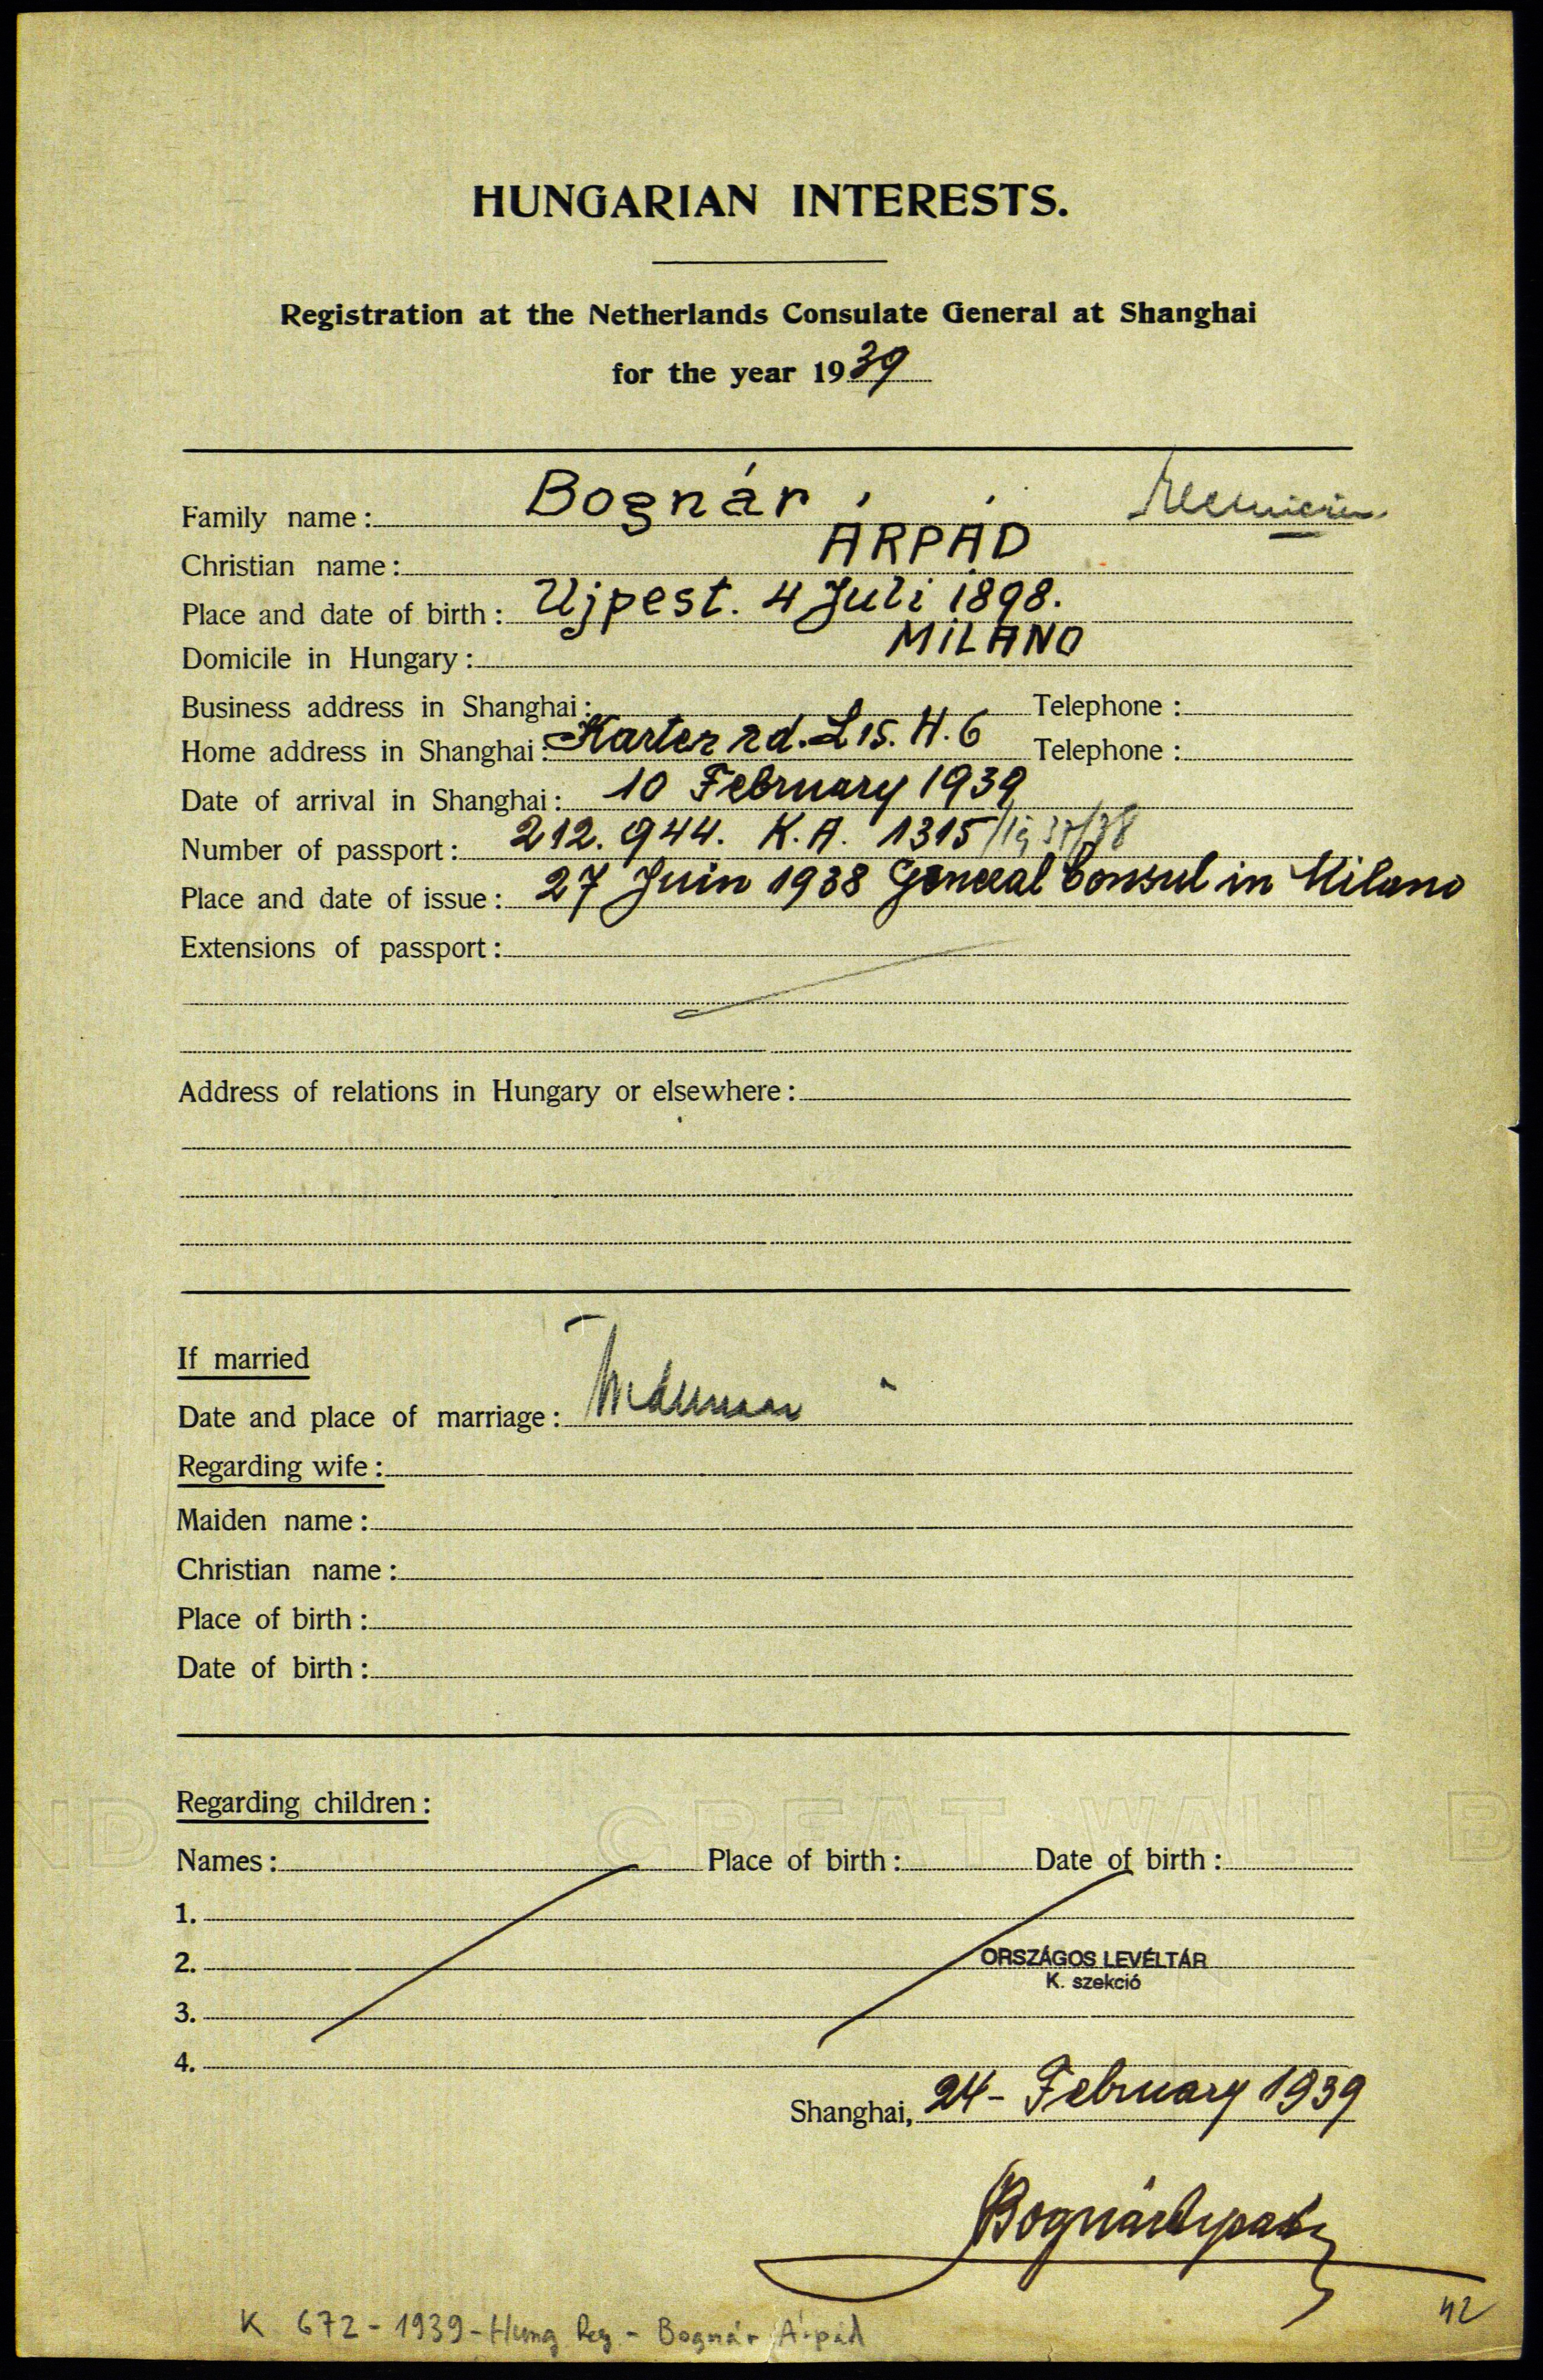 HUNGARIAN INTERESTS.
Registration at the Netherlands Consulate General at Shanghai
for the year 1939
Family name: Bognár
Christian name: ÁRPÁD
Place and date of birth: Ujpest. 4 Juli 1898.
Domicile in Hungary: MiLANO
Business address in Shanghai: Telephone:
Home address in Shanghai: Karter rd. L 15. H. 6 Telephone:
Date of arrival in Shanghai: 10 February 1939
Number of passport: 212.944. K.A. 1315
Place and date of issue: 27 Juin 1938 General Consul in Milano
Extensions of passport:
Address of relations in Hungary or elsewhere:
If married
Date and place of marriage:
Regarding wife:
Maiden name:
Christian name:
Place of birth:
Date of birth:
Regarding children:
GREAT WALL
Names: Place of birth: Date of birth:
1.
2.
ORSZÁGOS LEVÉLTÁR
K. szekció
3.
4.
Shanghai, 24- February 1939
Bognár Árpád
42
K 672 - 1939 - Hung Reg - Bognár Árpád